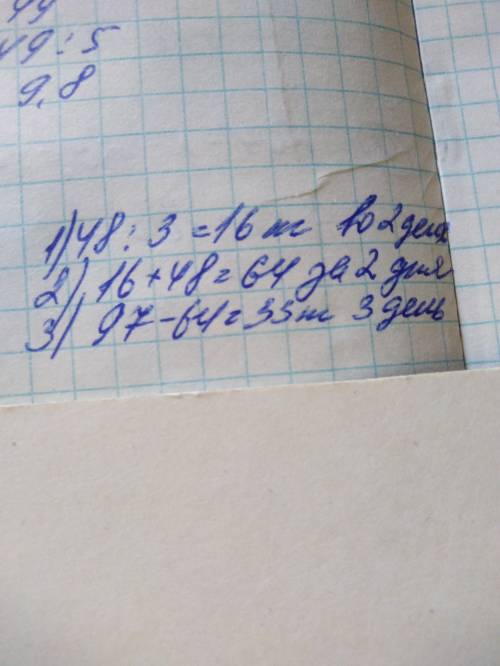 49 : 5
9,8
1) 48 : 3 = 16 кг во 2 день
2) 16 + 48 = 64 за 2 дня
3) 97 - 64 = 33 т 3 день